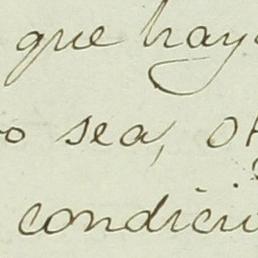 que hay
o sea, o
condici